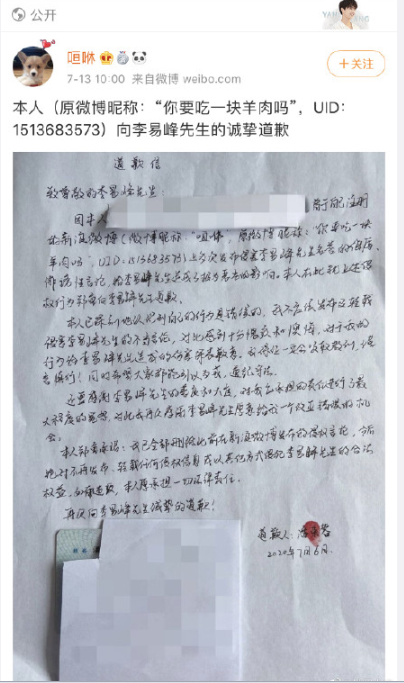 公开
咺咻
7-13 10:00 来自微博 weibo.com
+关注
本人（原微博昵称：“你要吃一块羊肉吗”，UID：
1513683573）向李易峰先生的诚挚道歉
道歉信
致尊敬的李易峰先生：
因本人
新浪微博（微博昵称：“咺咻”，原微博昵称：“你要吃一块
羊肉吗”，UID：1513683573）上多次发布侵害李易峰先生名誉的侮辱、
诽谤性言论，给李易峰先生造成了较为恶劣的影响。本人在此就上述侵
权行为郑重向李易峰先生道歉。
本人已深刻地认识到自己的行为是错误的，我不应该发布这些
侵害李易峰先生的不当言论，对此感到十分愧疚和懊悔，对于我的
行为给李易峰先生造成的伤害深表歉意。我将在
言慎行！同时希望大家
还要感谢李易峰先生的善良和大度，对我应承担的责任进行了最
大程度的宽恕，对此我再次感谢李易峰先生愿意给我一个改正错误的机
会。
本人郑重承诺：我已全部删除此前在新浪微博发布的侵权言论，今后
绝对不再发布、转载任何侵权信息或以其他方式侵犯李易峰先生的合法
权益，如有违反，本人愿承担一切法律责任。
再次向李易峰先生诚挚的道歉！
道歉人：
2020年7月6日